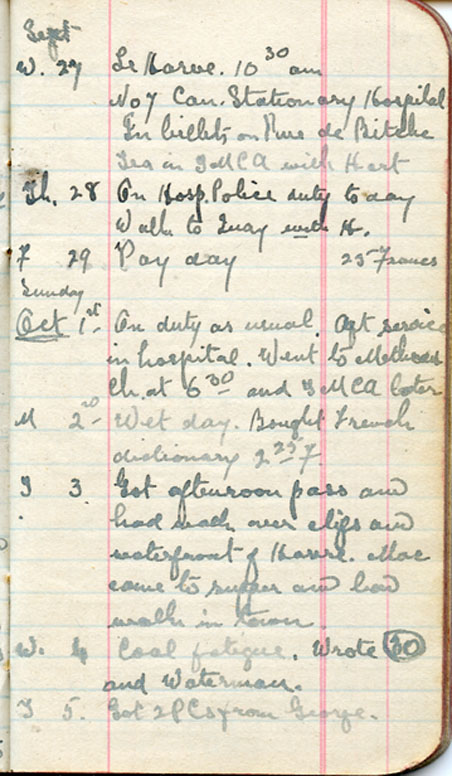 Sept
W. 27 Le Harve. 10 30 am
No 7 Can. Stationary Hospital
In billets on Rue de Bitche
Tea in YMCA with Hart
Th. 28 On Hosp. Police duty to day
Walk to Quay with H.
F 29 Pay day 25 Francs
Sunday
Oct 1st On duty as usual. Aft service
in hospital. Went to Methodist
Ch. at 6 30 and YMCA later
M 2nd Wet day. Bought French
dictionary 2 25 F.
T 3. Got afternoon pass and
had walk over clifs and
waterfront of Havre. Mac
came to supper and had
walk in town.
W. 4 Coal fatigue. Wrote 30
and Waterman.
T 5. Got 2 PCs from George.